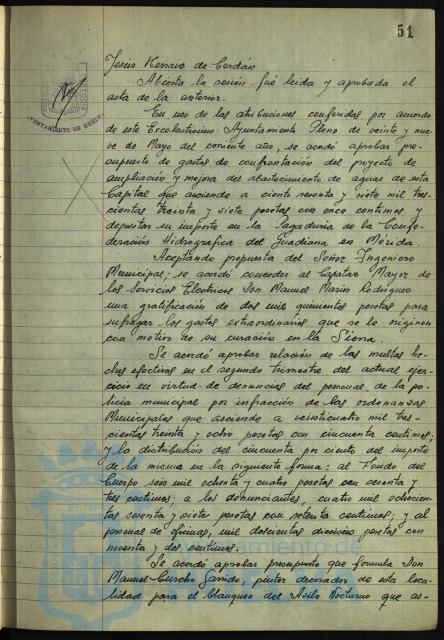 51
Jesús Herraiz de Cerdán
Abierta la sesión fué leida y aprobada el
acta de la anterior.
En uso de las atribuciones conferidas por acuerdo
de este Excelentísimo Ayuntamiento Pleno de veinte y nue-
ve de Mayo del corriente año, se acordó aprobar pre-
supuesto de gastos de confrontación del proyecto de
ampliación y mejora del abastecimiento de aguas de esta
Capital que asciende a ciento sesenta y siete mil tres-
cientas treinta y siete pesetas con once centimos y
depositar su importe en la Pagaduría de la Confe-
deración Hidrográfica del Guadiana en Mérida.
Aceptando propuesta del Señor Ingeniero
Municipal; se acordó conceder al Capataz Mayor de
los Servicios Electricos Don Manuel Marin Rodriguez
una gratificación de dos mil quinientas pesetas para
sufragar los gastos extraordinarios que se le originen
con motivo de su curación en la Sierra.
Se acordó aprobar relación de las multas he-
chas efectivas en el segundo trimestre del actual ejer-
cicio en virtud de denuncias del personal de la po-
licia municipal por infracción de las ordenanzas
Municipales que asciende a veinticuatro mil tres-
cientas treinta y ocho pesetas con cincuenta centimos;
y la distribución del cincuenta por ciento del importe
de la misma en la siguiente forma: al Fondo del
Cuerpo seis mil ochenta y cuatro pesetas con sesenta y
tres centimos; a los denunciantes, cuatro mil ochocien-
tas sesenta y siete pesetas con setenta centimos; y al
personal de oficinas, mil doscientas dieciseis pesetas con
noventa y dos centimos.
Se acordó aprobar presupuesto que formula Don
Manuel Garrido, pintor decorador de esta loca-
lidad para el blanqueo del Asilo Nocturno que as-
AYUNTAMIENTO DE HUELVA
Ayuntamiento de